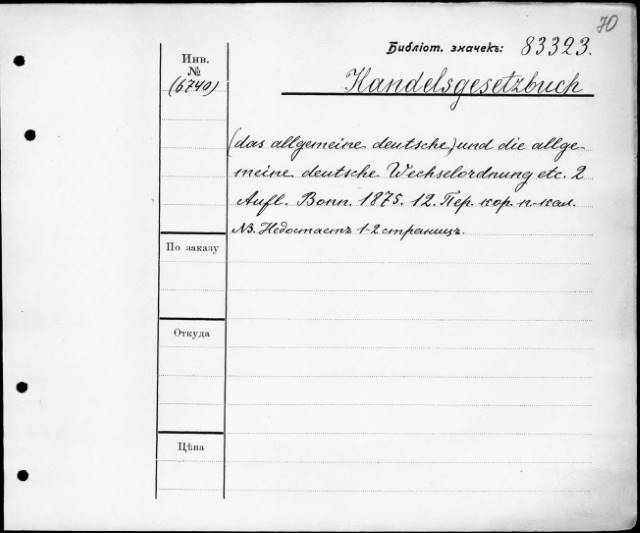 70
Библіот. значекъ: 83323.
Инв.
№
(6740)
Handelsgesetzbuch
(das allgemeine deutsche) und die allge-
meine deutsche Wechselordnung etc. 2
Aufl. Bonn. 1875. 12. Пер. кор. п.-кал.
NB. Недостаетъ 1-2 страницъ.
По заказу
Откуда
Цѣна